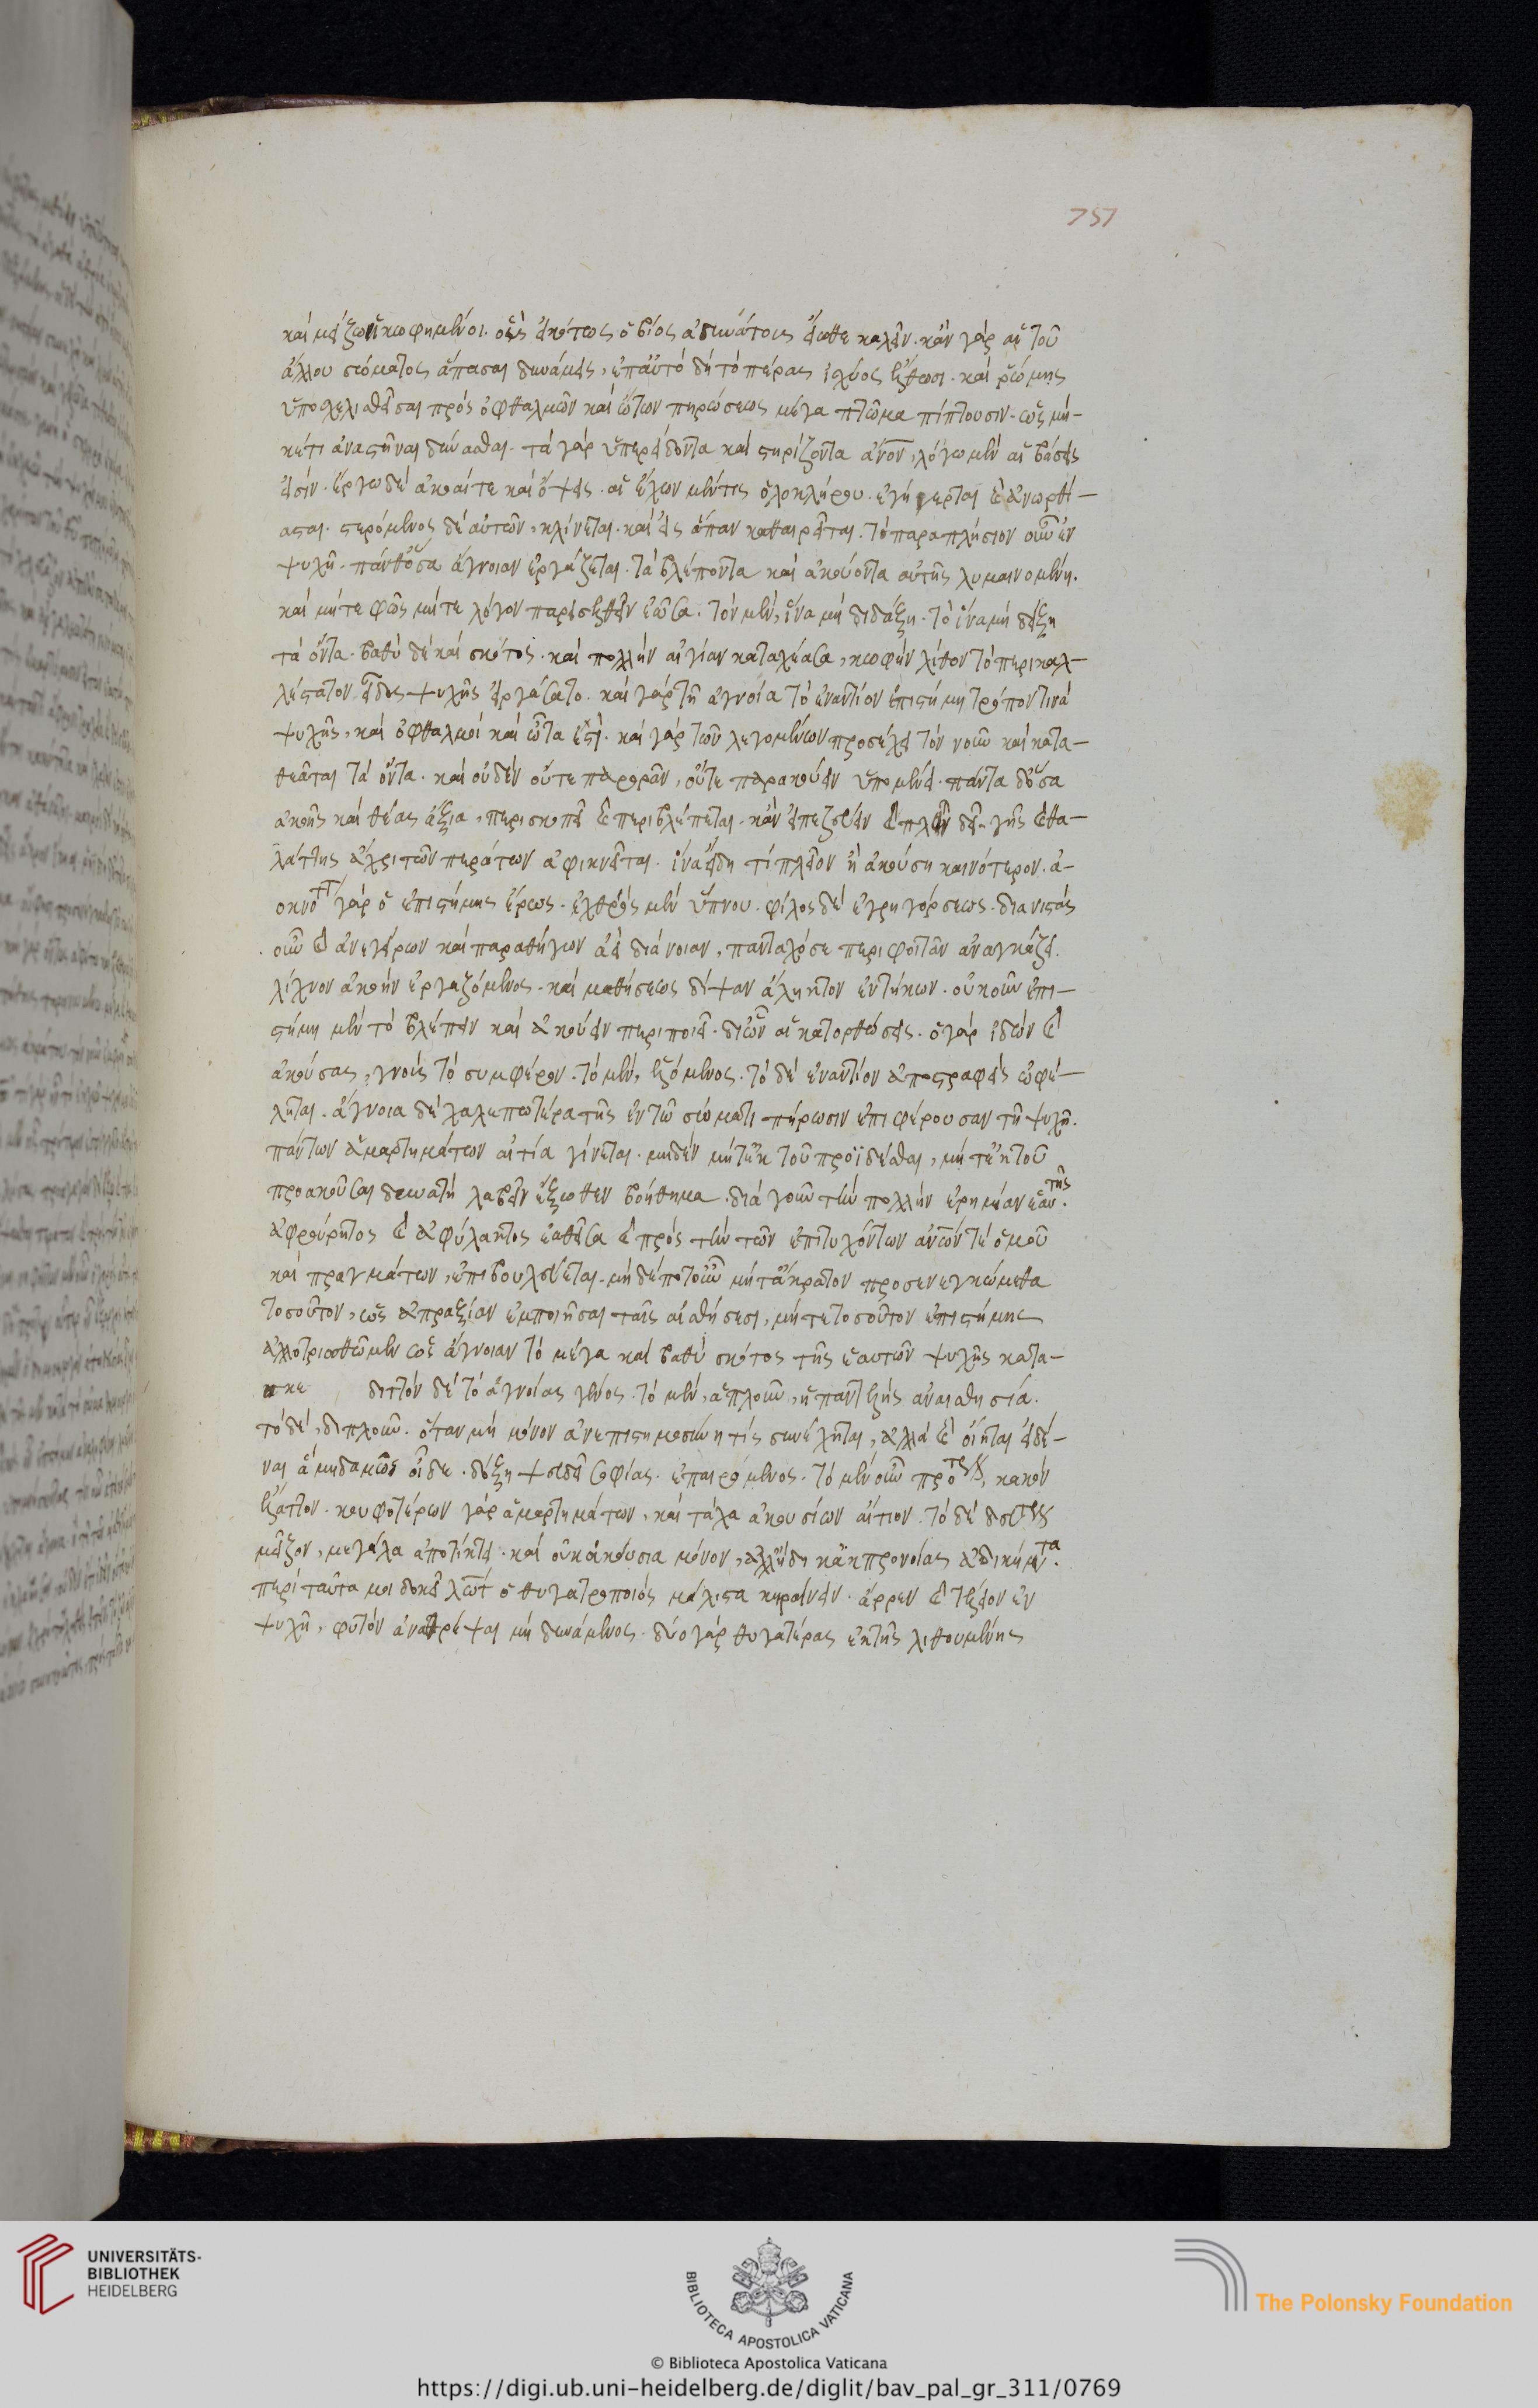 757
καὶ μείζω κεκωφημένοι. οὓς εἰκότως ὁ βίος ἀδυνάτους εἴωθε καλεῖν. κἂν γὰρ αἱ τοῦ
ἄλλου σώματος ἅπασαι δυνάμεις, ἐπ' αὐτὸ δὴ τὸ πέρας ἰσχύος ἔλθωσι. καὶ ῥώμης
ὑποσκελισθεῖσαι πρὸς ὀφθαλμῶν καὶ ὤτων πηρώσεως μέγα πτῶμα πίπτουσιν. ὡς μη-
κέτι ἀναστῆναι δύνασθαι. τὰ γὰρ ὑπερείδοντα καὶ στηρίζοντα ἄνον, λόγω μὲν αἱ βάσεις
εἰσίν. ἔργω δὲ ἀκοαί τε καὶ ὄψεις. ἃς ἔχων μὲν τις ὁλοκλήρου. ἐγήγερται καὶ ἀνωρθί-
ασται. στερόμενος δὲ αὐτῶν, κλίνεται. καὶ εἰς ἅπαν καθαιρεῖται. τὸ παραπλήσιον οὖν ἐν
ψυχῆ. πάνθ' ὅσα ἄγνοιαν ἐργάζεται. τὰ βλέποντα καὶ ἀκούοντα αὐτῆς λυμαινομένη.
καὶ μήτε φῶς μήτε λόγον παρεισελθεῖν ἐῶσα. τὸν μὲν, ἵνα μὴ διδάξη. τὸ ἵνα μὴ δείξη
τὰ ὄντα. βαθὺ δὲ καὶ σκότος. καὶ πολλὴν αἰγίαν καταχέασα, κωφὴν λίθον τὸ περικαλ-
λέστατον εἶδος ψυχῆς εἰργάσατο. καὶ γὰρ τῆ ἀγνοία τὸ ἐναντίον ἐπιστήμη τρόπον τινὰ
ψυχῆς, καὶ ὀφθαλμοὶ καὶ ὦτα ἐστὶ. καὶ γὰρ τῶν λεγομένων προσέχει τὸν νοῦν καὶ κατα-
θεᾶται τὰ ὄντα. καὶ οὐδὲν οὔτε παρορᾶν, οὔτε παρακούειν ὑπομένει. πάντα δὅσα
ἀκοῆς καὶ θέας ἄξια, περισκοπεῖ καὶ περιβλέπεται. κἂν εἰ πεζεύειν καὶ πλεῖν δεῖ. γῆς καὶ θα-
λάττης ἄχρι τῶν περάτων ἀφικνεῖται. ἵνα ἴδη τί πλεῖον ἢ ἀκούση καινότερον. ἀ-
οκνότ γὰρ ὁ ἐπιστήμης ἔρως. ἐχθρὸς μὲν ὕπνου. φίλος δὲ ἐγρηγόρσεως. διανιστὰς
οὖν καὶ ἀνεγείρων καὶ παραθήγων ἀεὶ διάνοιαν, πανταχόσε περιφοιτᾶν ἀναγκάζει.
λίχνον ἀκοὴν ἐργαζόμενος. καὶ μαθήσεως δίψαν ἄληκτον ἐντήκων. οὐκοῦν ἐπι-
στήμη μὲν τὸ βλέπειν καὶ ἀκούειν περιποιεῖ. δι' ὧν αἱ κατορθώσεις. ὁ γὰρ ἰδὼν καὶ
ἀκούσας, γνοὺς τὸ συμφέρον. τὸ μὲν, ἑλόμενος. τὸ δὲ ἐναντίον ἀποστραφεὶς ὠφέ-
ληται. ἄγνοια δὲ χαλεπωτέρα τῆς ἐν τῶ σώματι πήρωσιν ἐπιφέρουσαν τῆ ψυχῆ.
πάντων ἁμαρτημάτων αἰτία γίνεται. μηδὲν μήτ' ἐκ τοῦ προϊδέσθαι, μήτ' ἐκ τοῦ
προακοῦσαι δυνατὴ λαβεῖν ἔξωθεν βοήθημα. διὰ γοῦν τὴν πολλὴν ἐρημίαν ἑαυτῆς.
ἀφρούρητος καὶ ἀφύλακτος ἐαθεῖσα καὶ πρὸς τὴν τῶν ἐπιτυχόντων ἀνων τὲ ὁμοῦ
καὶ πραγμάτων, ἐπιβουλεύεται. μὴ δέποτ' οὖν μήτ' ἄκρατον προσενεγκώμεθα
τοσοῦτον, ὡς ἀπραξίαν ἐμποιῆσαι ταῖς αἰσθήσεσι, μήτε τοσοῦτον ἐπιστήμης
ἀλλοτριωθῶμεν ὡς ἄγνοιαν τὸ μέγα καὶ βαθὺ σκότος τῆς ἑαυτῶν ψυχῆς κατα-
κε διττὸν δὲ τὸ ἀγνοίας γένος. τὸ μὲν, ἁπλοῦν, ἡ παντελὴς ἀναισθησία.
τὸ δὲ, διπλοῦν. ὅταν μὴ μόνον ἀνεπιστημοσύνη τίς συνέχηται, ἀλλὰ καὶ οἴηται εἰδέ-
ναι ἃ μηδαμῶς οἶδε. δόξη ψευδεῖ σοφίας. ἐπαιρόμενος. τὸ μὲν οὖν πρότερον, κακὸν
ἔλαττον. κουφοτέρων γὰρ ἁμαρτημάτων, καὶ τάχα ἀκουσίων αἴτιον. τὸ δὲ δεύτερον
μεῖζον, μεγάλα ἀποτίκτει. καὶ οὐκ ἀκούσια μόνον, ἀλλ' ἤδη κἀκ προνοίας ἀδικήματα.
περὶ ταῦτα μοι δοκεῖ λὼτ ὁ θυγατροποιὸς μάλιστα κηραίνειν. ἄρρεν καὶ τέλειον ἐν
ψυχῆ, φυτὸν ἀναθρέψαι μὴ δυνάμενος. δύο γὰρ θυγατέρας ἐκ τῆς λιθουμένης
UNIVERSITÄTS-
BIBLIOTHEK
HEIDELBERG
BIBLIOTECA APOSTOLICA VATICANA
The Polonsky Foundation
© Biblioteca Apostolica Vaticana
https://digi.ub.uni-heidelberg.de/diglit/bav_pal_gr_311/0769